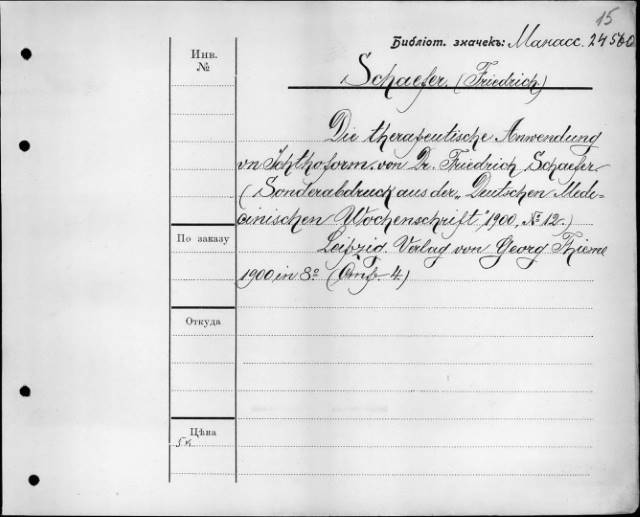 15
Библіот. значекъ: Манасс. 24560
Инв.
№
Schaefer. (Friedrich)
Die therapeutische Anwendung
vn Ichthoform. von Dr. Friedrich Schaefer.
(Sonderabdruck aus der „Deutschen Mede-
cinischen Wochenschrift", 1900, № 12.)
По заказу
Leipzig. Verlag von Georg Thieme
1900, in 8º (Антв. 4.)
Откуда
Цѣна
5к